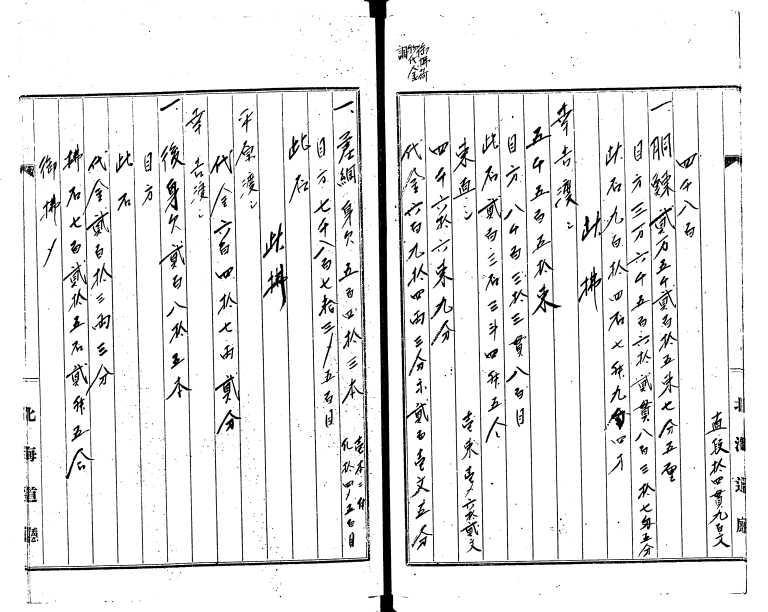 四千八百
直段拾四貫九百文
一、胴鯡貳万五千貳百拾五束七分五厘
目方三万六千五百六拾貳貫八百三拾七匁五分
此石九百拾四石七升九合四才
此拂
幸吉渡ニ
五千五百五拾束
目方八千百三拾三貫八百目
此石貳百三石三斗四升五合
束直ニ
壱束
六拾貳文
四千六拾六束九分
代金六百九拾四両三分
貳百壱文五分
一、差網身欠五百四拾三本
九拾四
五百目
目方七千八百七拾三
五百目
此石
此拂
渡ニ
代金六百四拾七両貳分
幸吉渡ニ
一、後身欠貳百八拾五本
目方
此石
代金貳百拾三両三分
拂石七百貳拾五石貳升五合
御拂
北海道廳
北海道廳